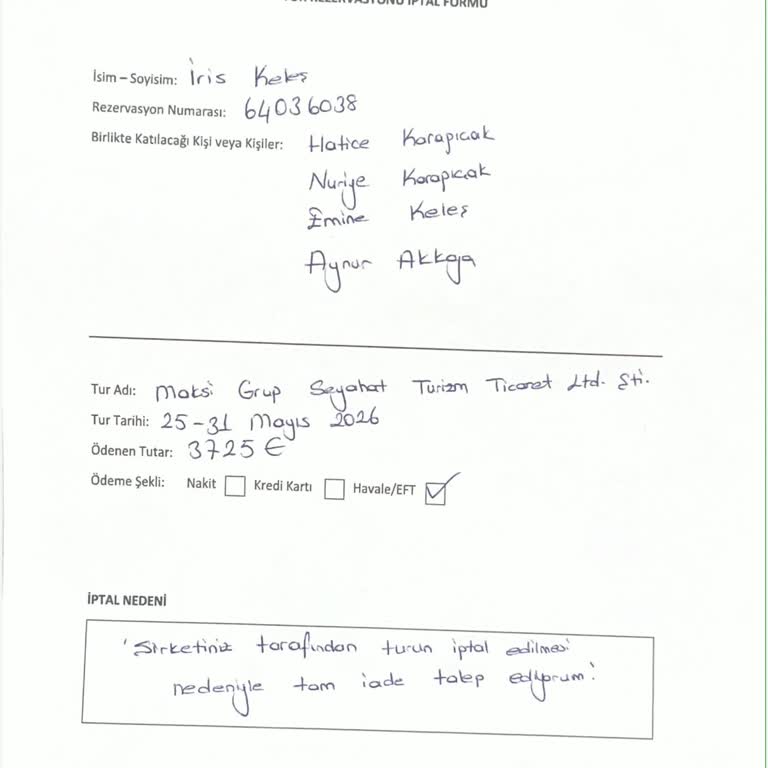 REZERVASYONU İPTAL FORMU
İsim – Soyisim: İris Keleş
Rezervasyon Numarası: 64036038
Birlikte Katılacağı Kişi veya Kişiler: Hatice Karapıçak
Nuriye Karapıçak
Emine Keleş
Aynur Akkaya
Tur Adı: Maksi Grup Seyahat Turizm Ticaret Ltd. Şti.
Tur Tarihi: 25-31 Mayıs 2026
Ödenen Tutar: 3725 €
Ödeme Şekli: Nakit Kredi Kartı Havale/EFT ✓
İPTAL NEDENİ
'Şirketiniz tarafından turun iptal edilmesi
nedeniyle tam iade talep ediyorum.'